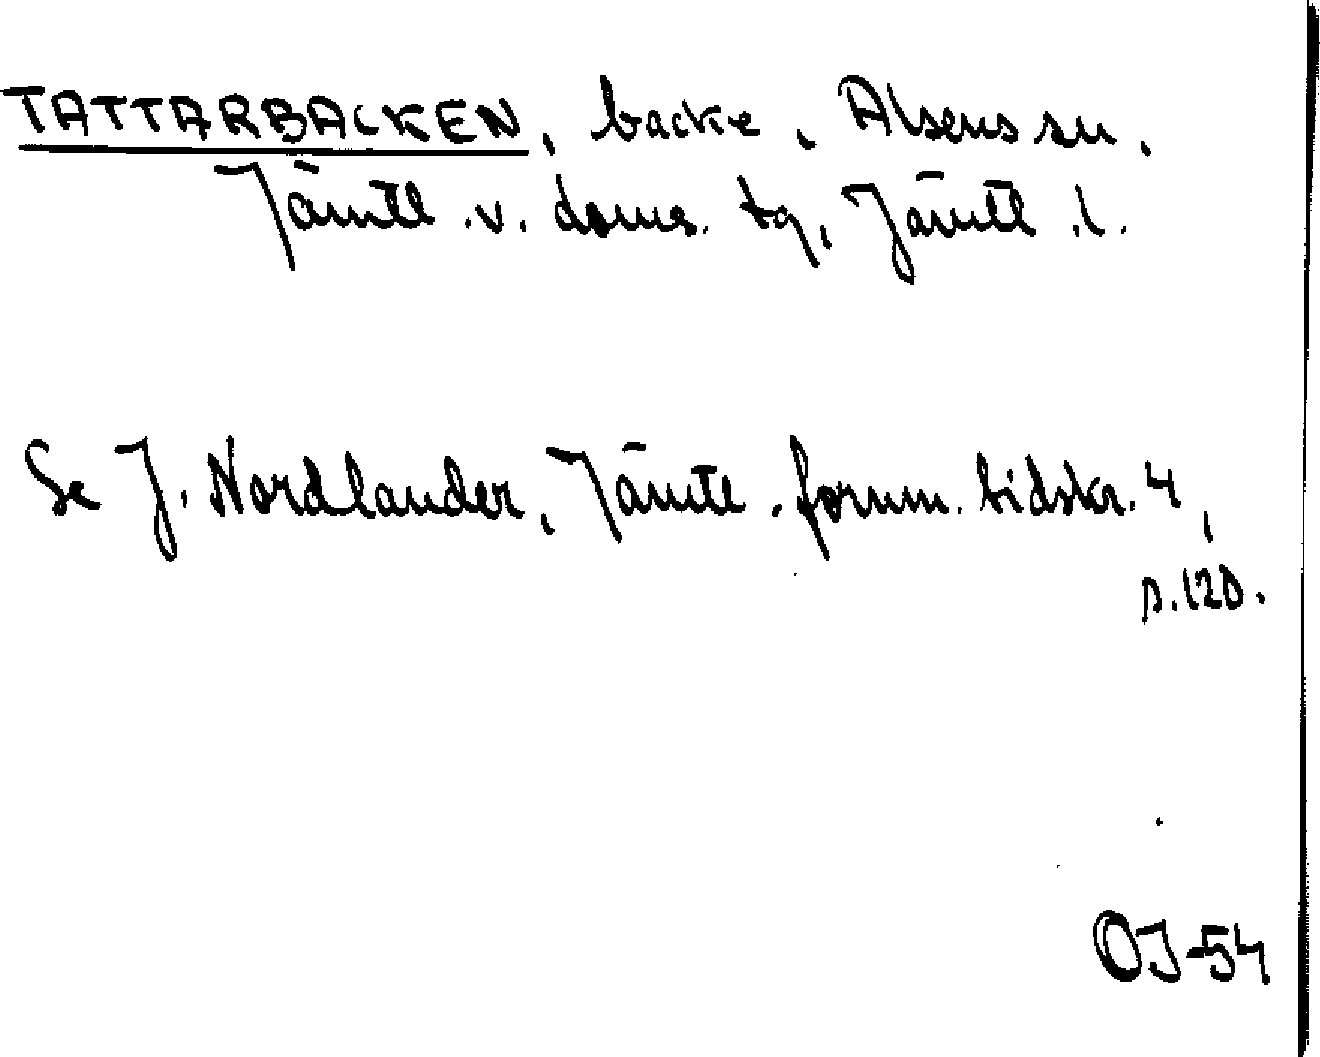 TATTARBACKEN, backe, Alsens sn,
Jämtl. v. doms. tg, Jämtl. l.
Se J. Nordlander, Jämtl. fornm. tidskr. 4,
s. 120.
OJ-54